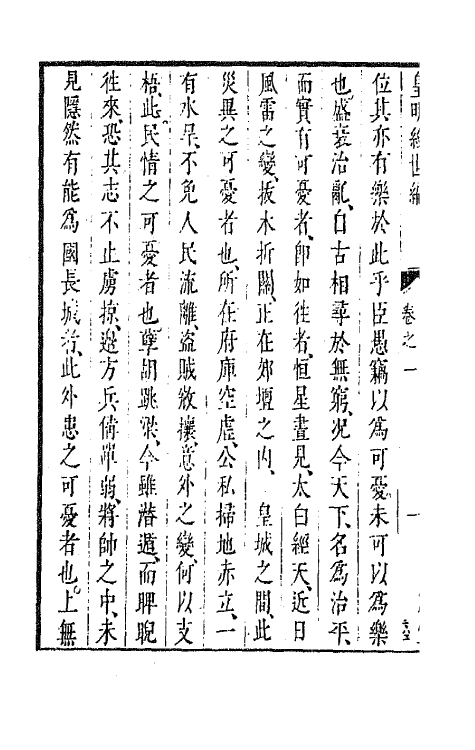 皇明經世編 卷之一 一
位其亦有樂於此乎臣愚竊以為可憂未可以為樂
也盛衰治亂自古相尋於無窮況今天下名為治平
而實有可憂者即如徃者恒星晝見太白經天近日
風雷之變拔木折關正在郊壇之內 皇城之間此
災異之可憂者也所在府庫空虛公私掃地赤立一
有水旱不免人民流離盜賊敓攘意外之變何以支
梧此民情之可憂者也孽胡跳梁今雖潛遁而睥睨
徃來恐其志不止虜掠邊方兵備單弱將帥之中未
見隱然有能為國長城者此外患之可憂者也上無